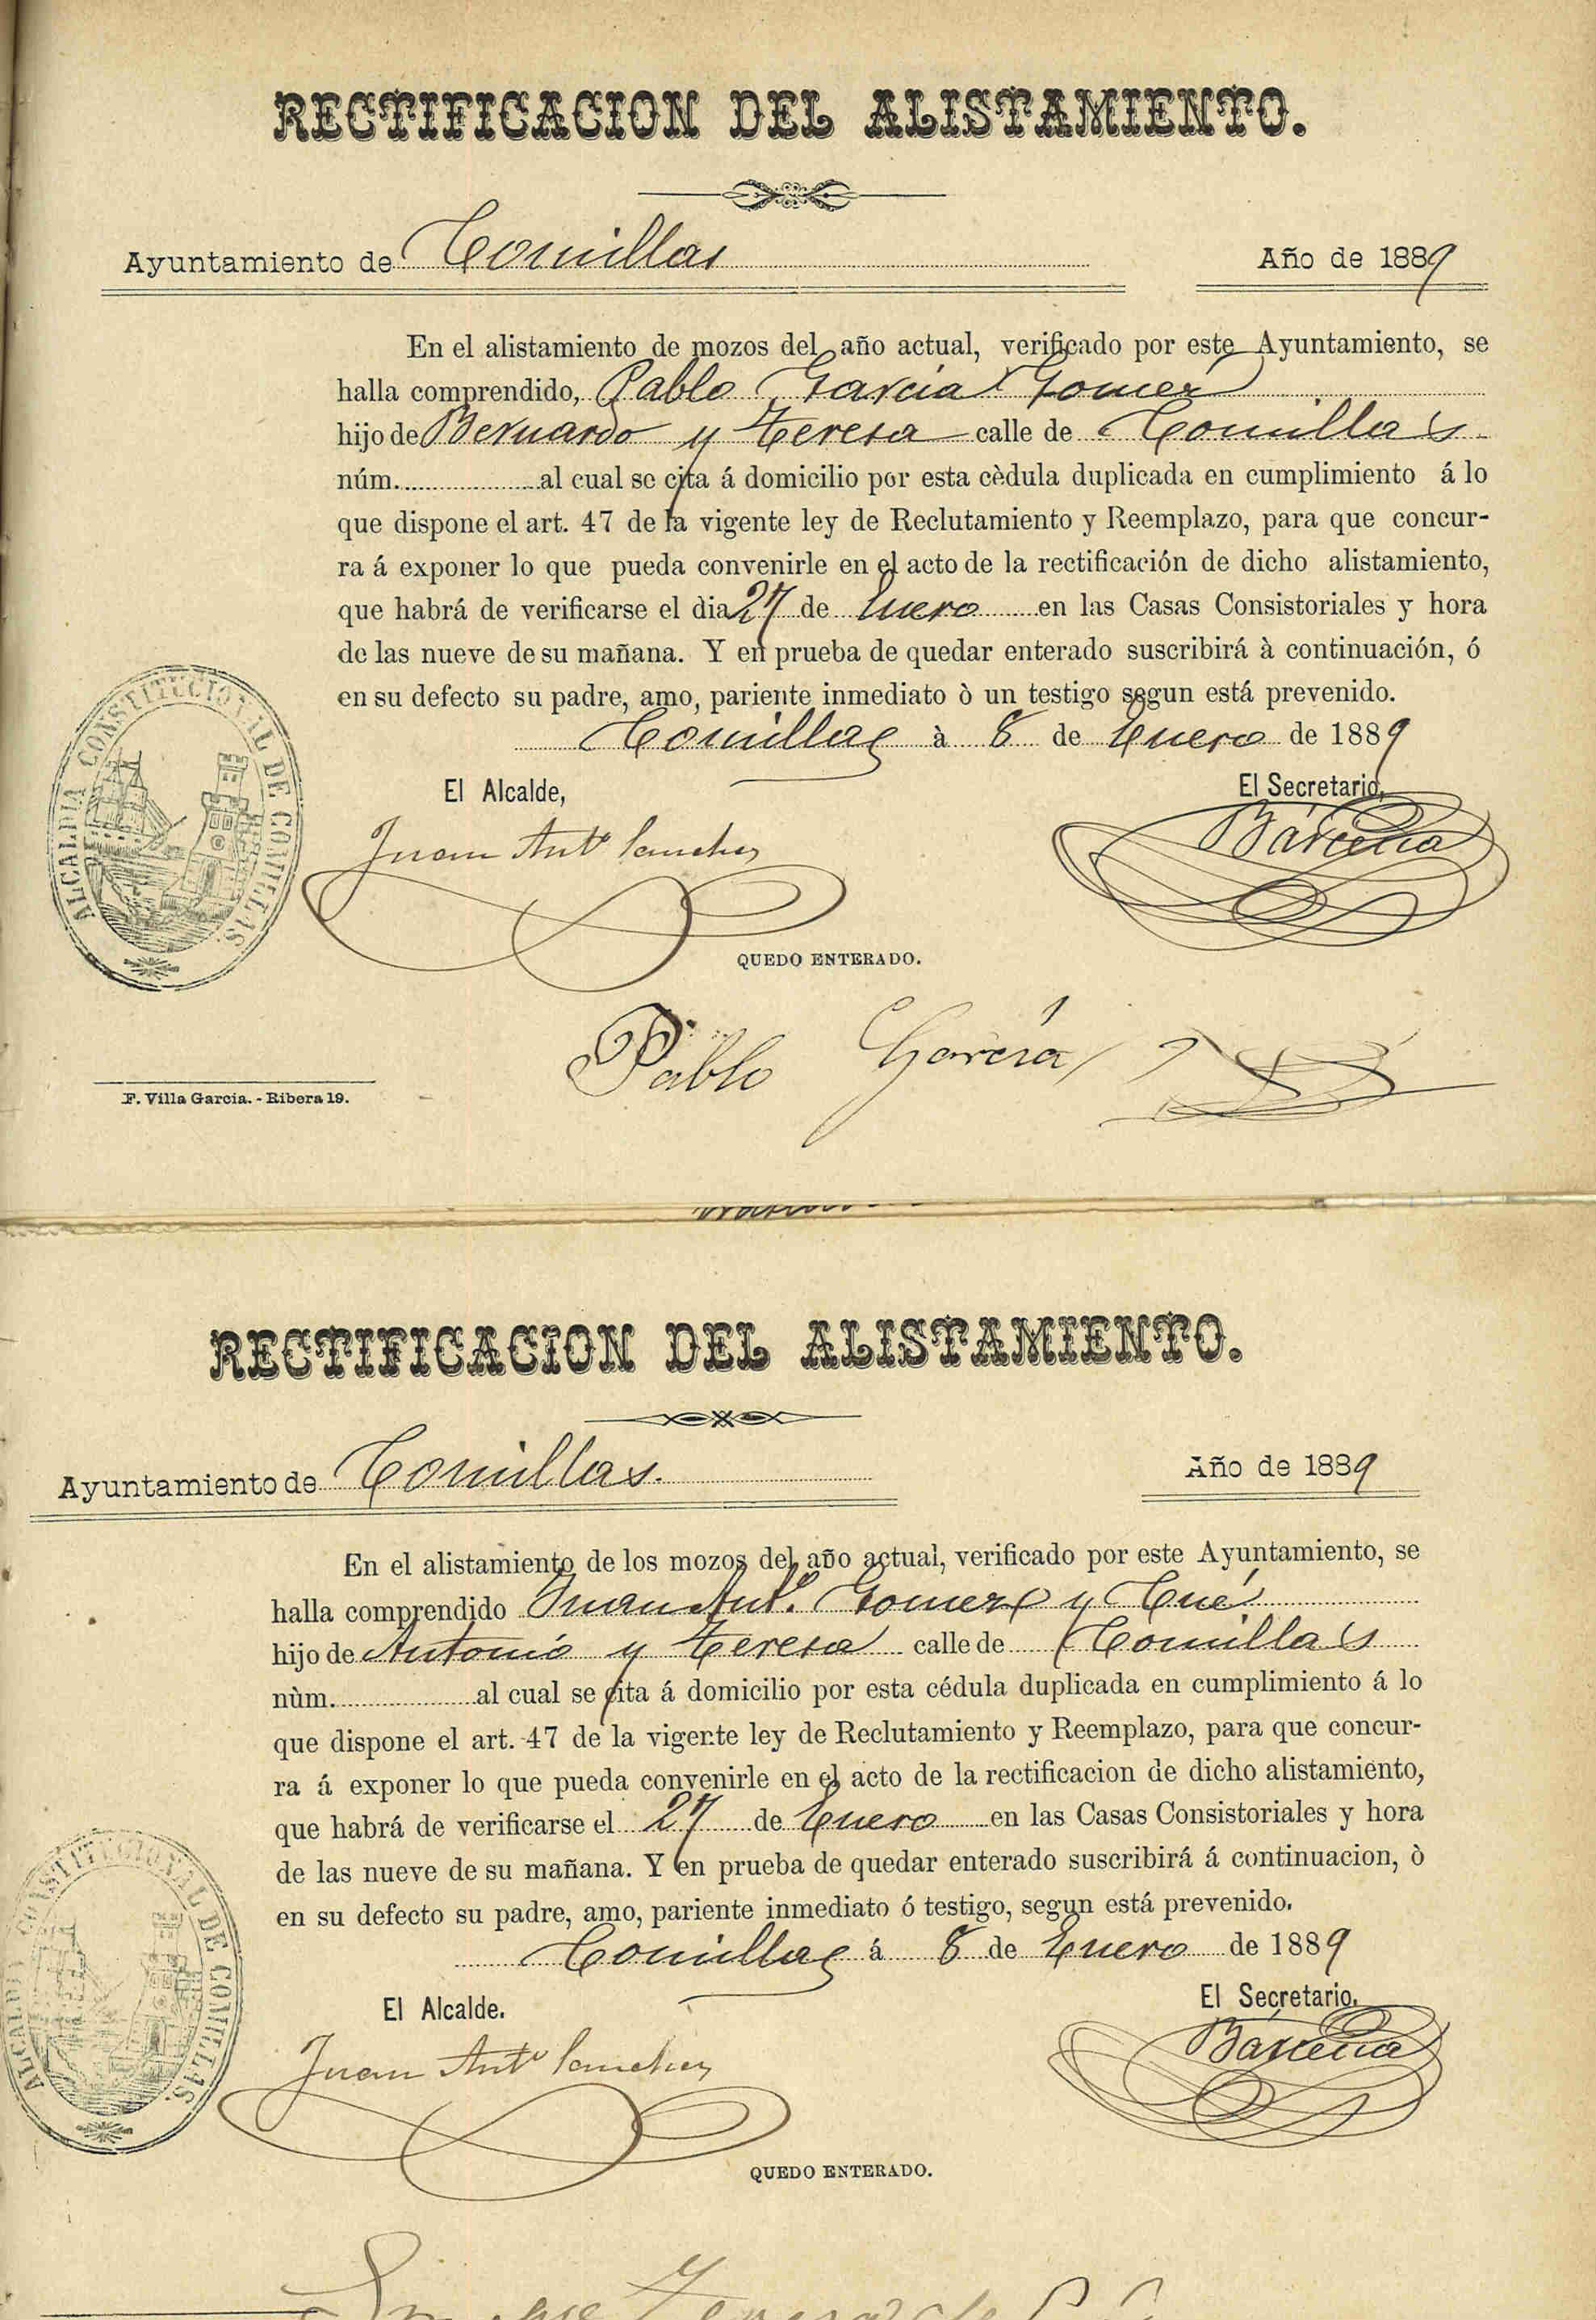 RECTIFICACION DEL ALISTAMIENTO.
Ayuntamiento de Comillas Año de 1889
En el alistamiento de mozos del año actual, verificado por este Ayuntamiento, se
halla comprendido, Pablo Garcia Gomez
hijo de Bernardo y Teresa calle de Comillas
núm. al cual se cita á domicilio por esta cèdula duplicada en cumplimiento á lo
que dispone el art. 47 de la vigente ley de Reclutamiento y Reemplazo, para que concur-
ra á exponer lo que pueda convenirle en el acto de la rectificación de dicho alistamiento,
que habrá de verificarse el dia 27 de Enero en las Casas Consistoriales y hora
de las nueve de su mañana. Y en prueba de quedar enterado suscribirá à continuación, ó
en su defecto su padre, amo, pariente inmediato ò un testigo segun está prevenido.
Comillas à 8 de Enero de 1889
El Alcalde, El Secretario,
Juan Antº Sanchez Bárcena
ALCALDIA CONSTITUCIONAL DE COMILLAS.
QUEDO ENTERADO.
Pablo Garcia
F. Villa Garcia. - Ribera 19.
RECTIFICACION DEL ALISTAMIENTO.
Ayuntamiento de Comillas. Año de 1889
En el alistamiento de los mozos del año actual, verificado por este Ayuntamiento, se
halla comprendido Juan Antº. Gomez y Cué
hijo de Antonio y Teresa calle de Comillas
nùm. al cual se cita á domicilio por esta cédula duplicada en cumplimiento á lo
que dispone el art. 47 de la vigente ley de Reclutamiento y Reemplazo, para que concur-
ra á exponer lo que pueda convenirle en el acto de la rectificacion de dicho alistamiento,
que habrá de verificarse el 27 de Enero en las Casas Consistoriales y hora
de las nueve de su mañana. Y en prueba de quedar enterado suscribirá á continuacion, ò
en su defecto su padre, amo, pariente inmediato ó testigo, segun está prevenido.
Comillas á 8 de Enero de 1889
El Alcalde. El Secretario.
Juan Antº Sanchez Bárcena
ALCALDIA CONSTITUCIONAL DE COMILLAS.
QUEDO ENTERADO.